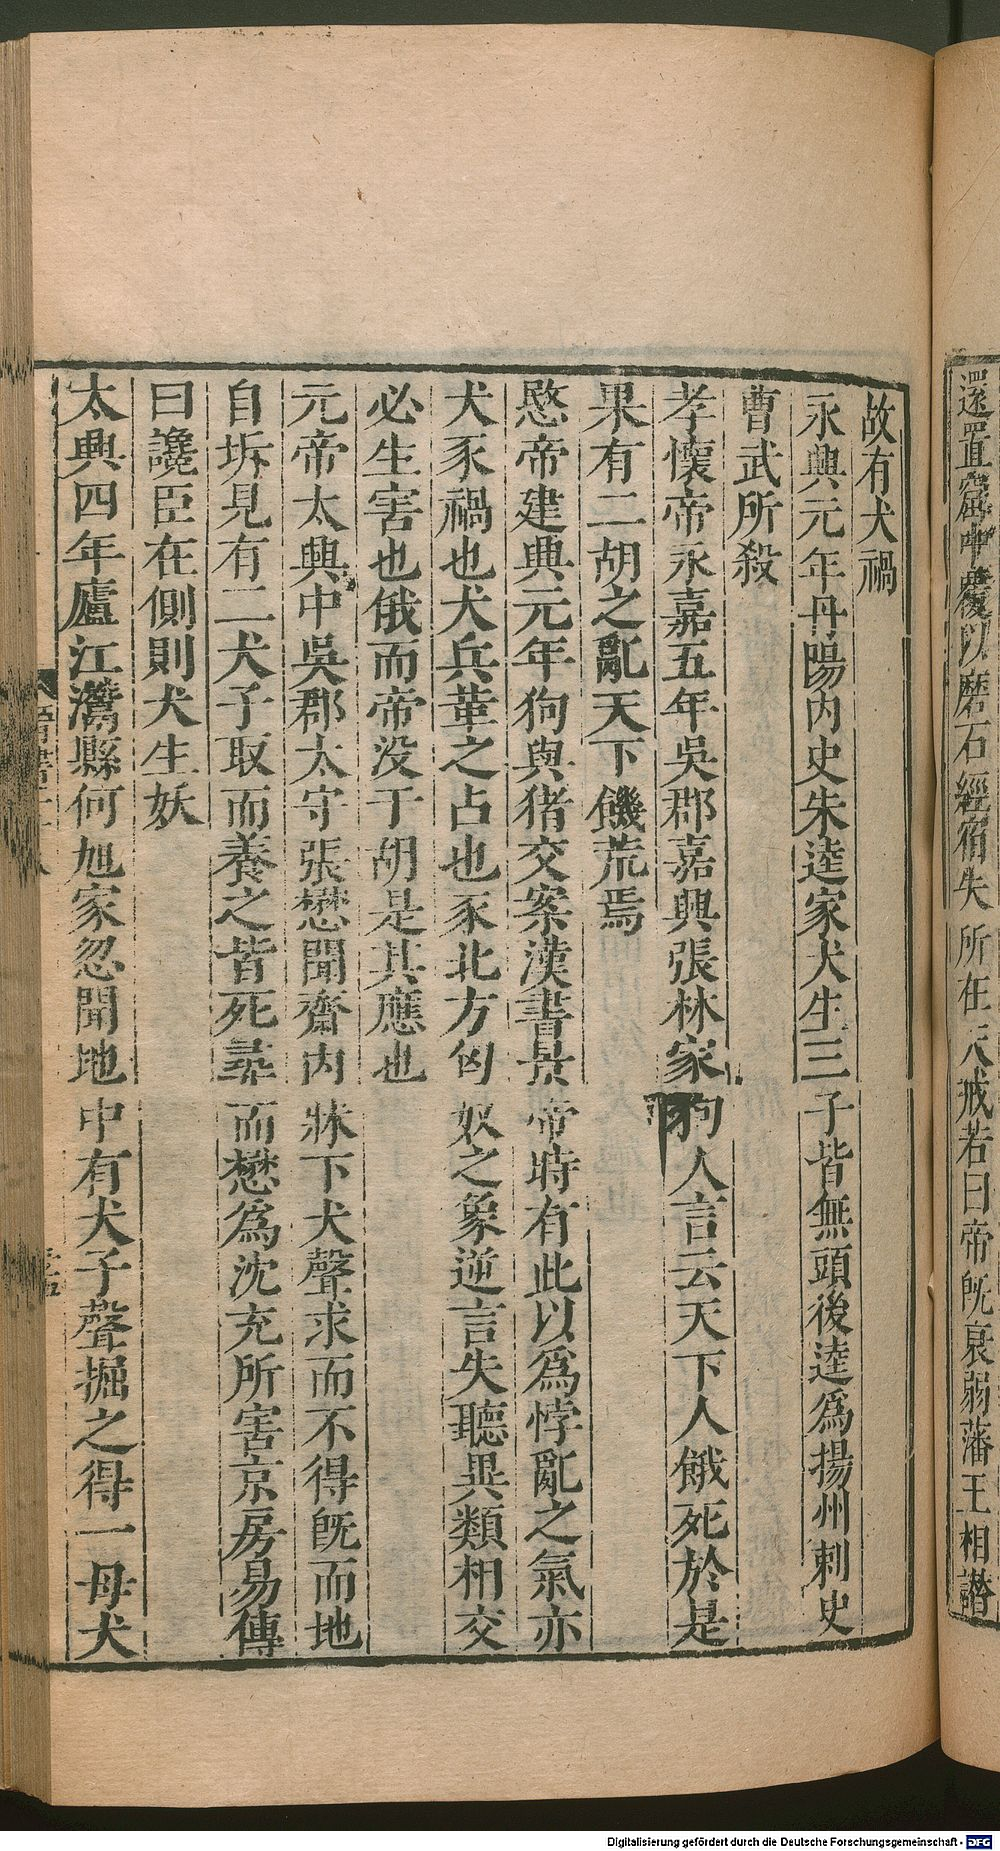 還置窟中覆以磨石經宿失所在天戒若曰帝旣衰弱藩王相譖
故有犬禍
永興元年丹陽內史朱逵家犬生三子皆無頭後逵爲揚州刺史
曹武所殺
孝懷帝永嘉五年吳郡嘉興張林家狗人言云天下人餓死於是
果有二胡之亂天下饑荒焉
愍帝建興元年狗與猪交案漢書景帝時有此以爲悖亂之氣亦
犬豕禍也犬兵革之占也豕北方匈奴之象逆言失聽異類相交
必生害也俄而帝没于胡是其應也
元帝太興中吳郡太守張懋聞齋內牀下犬聲求而不得旣而地
自坼見有二犬子取而養之皆死尋而懋爲沈充所害京房易傳
曰讒臣在側則犬生妖
太興四年廬江灊縣何旭家忽聞地中有犬子聲掘之得一母犬
Digitalisierung gefördert durch die Deutsche Forschungsgemeinschaft - DFG